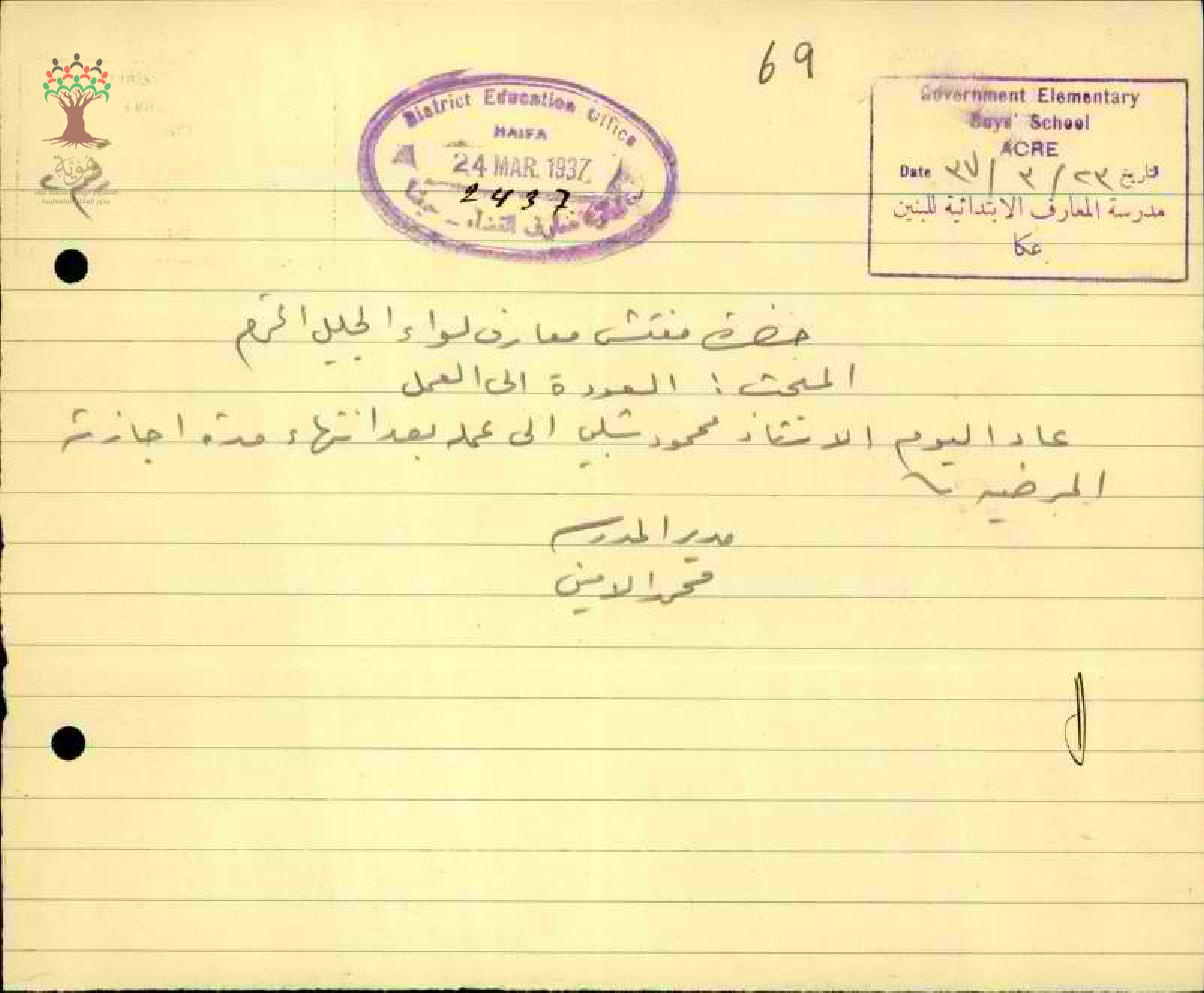 69
District Education Office
HAIFA
24 MAR. 1937
2437
Government Elementary
Boys' School
ACRE
Date ٢٣ / ٣ / ٣٧ التاريخ
مدرسة المعارف الابتدائية للبنين
عكا
هوية
حضرة مفتش معارف لواء الجليل المحترم
المبحث : العودة الى العمل
عاد اليوم الاستاذ محمود شلبي الى عمله بعد انتهاء مدة اجازته
المرضية
مدير المدرسة
محمد الامين